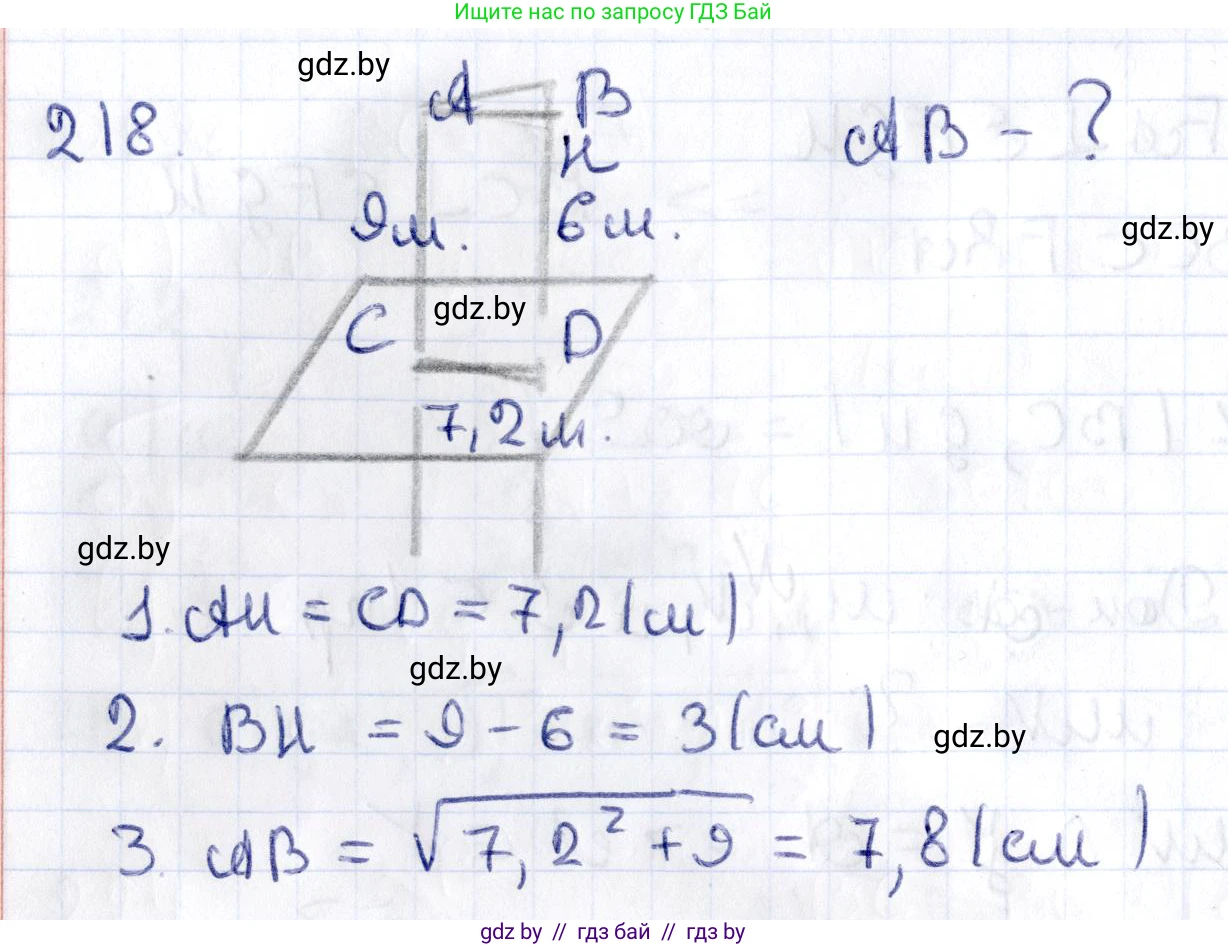 Ищите нас по запросу ГДЗ Бай
gdz.by
218.
A B
H
AB - ?
9м. 6м.
gdz.by
C gdz.by D
7,2м.
gdz.by
1. AH = CD = 7,2 (см)
gdz.by
2. BH = 9 - 6 = 3 (см)
gdz.by
3. AB = √7,2² + 9 = 7,8 (см)
gdz by // гдз бай // гдз by